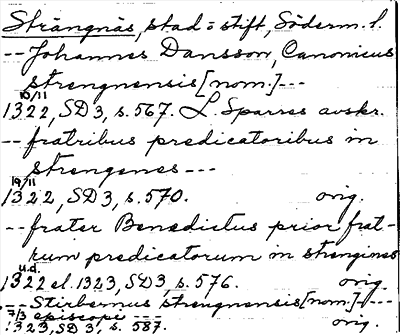 Strängnäs, stad o stift, Söderm. l.
-- Johannes Dansson, Canonicus
strengnensis [nom.] ---
10/11
1322, SD 3, s. 567. L. Sparres avskr.
-- fratribus predicatoribus in
strengenes ---
19/11
1322, SD 3, s. 570. orig.
-- frater Benedictus prior frat-
rum predicatorum in strengines
u.d.
1322 el. 1323, SD 3, s. 576. orig.
--- Stirbernus strengnensis [nom.] ---
7/3 episcopi ---
1323, SD 3, s. 587. orig.